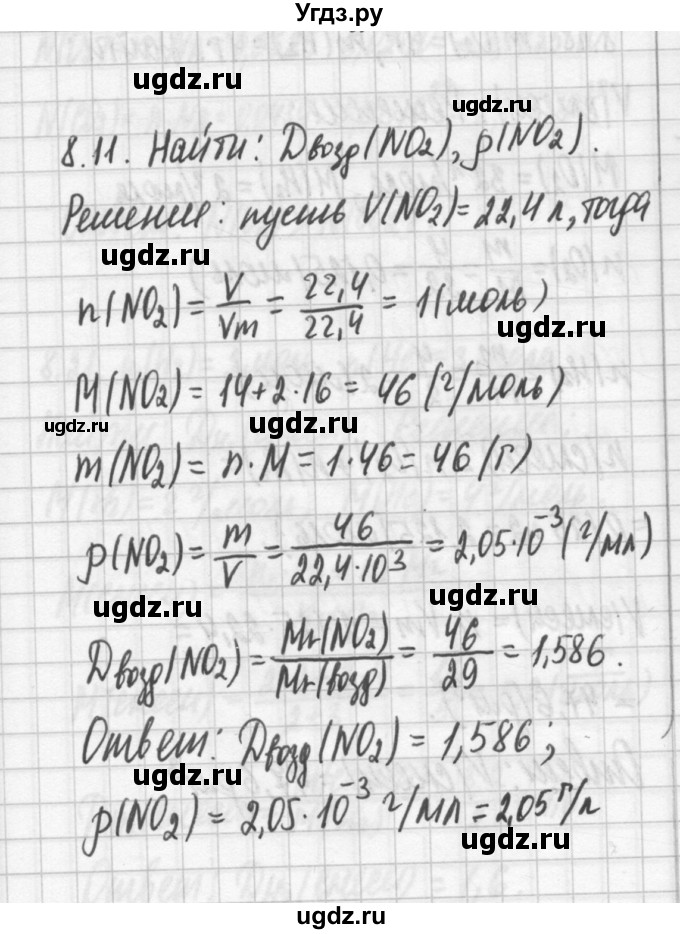 Угдз.ру
ugdz.ru
ugdz.ru
8.11. Найти: Dвозд(NO₂), ρ(NO₂).
Решение: пусть V(NO₂)=22,4 л, тогда
ugdz.ru
n(NO₂) = V/Vm = 22,4/22,4 = 1(моль)
ugdz.ru
M(NO₂) = 14+2·16 = 46 (г/моль)
ugdz.ru
ugdz.ru
m(NO₂) = n·M = 1·46 = 46 (г)
ρ(NO₂) = m/V = 46/22,4·10³ = 2,05·10⁻³(г/мл)
ugdz.ru
ugdz.ru
Dвозд(NO₂) = Mr(NO₂)/Mr(возд) = 46/29 = 1,586.
Ответ: Dвозд(NO₂) = 1,586;
ugdz.ru
ρ(NO₂) = 2,05·10⁻³ г/мл = 2,05 г/л
ugdz.ru
ugdz.ru